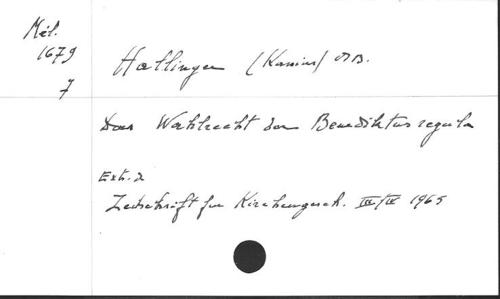 Mél.
1679
7
Hallinger (Kassius) OSB.
Das Wahlrecht der Benediktusregula
Extr. d
Zeitschrift für Kirchengesch. III/IV 1965